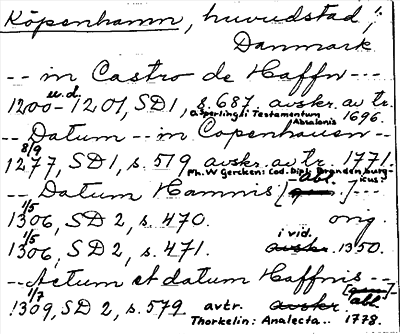 Köpenhamn, huvudstad i
Danmark
-- in Castro de Haffn ---
u.d.
1200-1201, SD1, s. 687 avskr. av tr.
O. Sperlingii Testamentum Absalonis 1696.
-- Datum -- in Copenhauen --
8/9
1277, SD1, s. 519 avskr. av tr. 1771.
Ph. W Gercken: Cod. dipl. Brandenburgicus:
-- Datum Hamnis [abl.] ---
1/5
1306, SD 2, s. 470. orig.
1/5 i vid.
1306, SD 2, s. 471. avskr. 1350.
-- Actum et datum Haffnis --
1/7 [abl.]
1309, SD 2, s. 579 avtr. avskr.
Thorkelin: Analecta.. 1778.